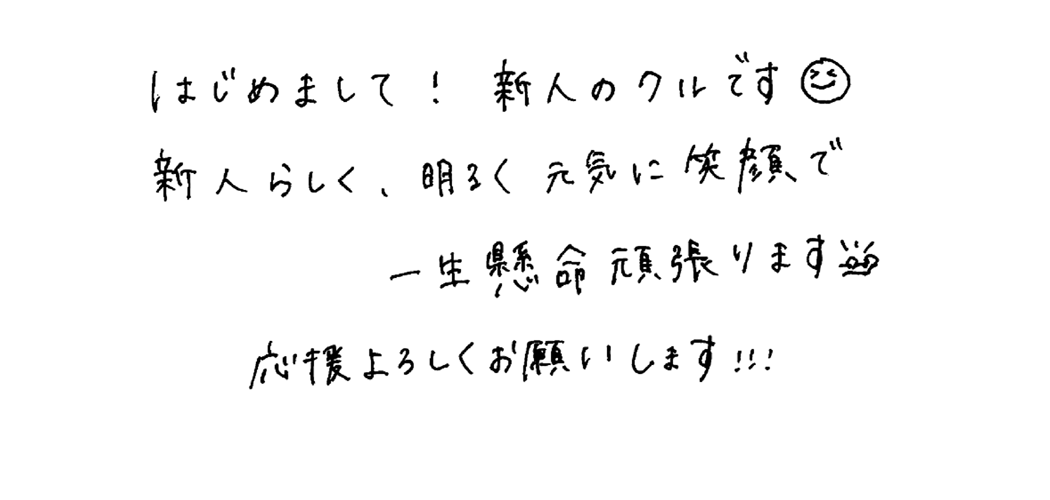 はじめまして! 新人のクルです
新人らしく、明るく元気に笑顔で
一生懸命頑張ります
応援よろしくお願いします!!!